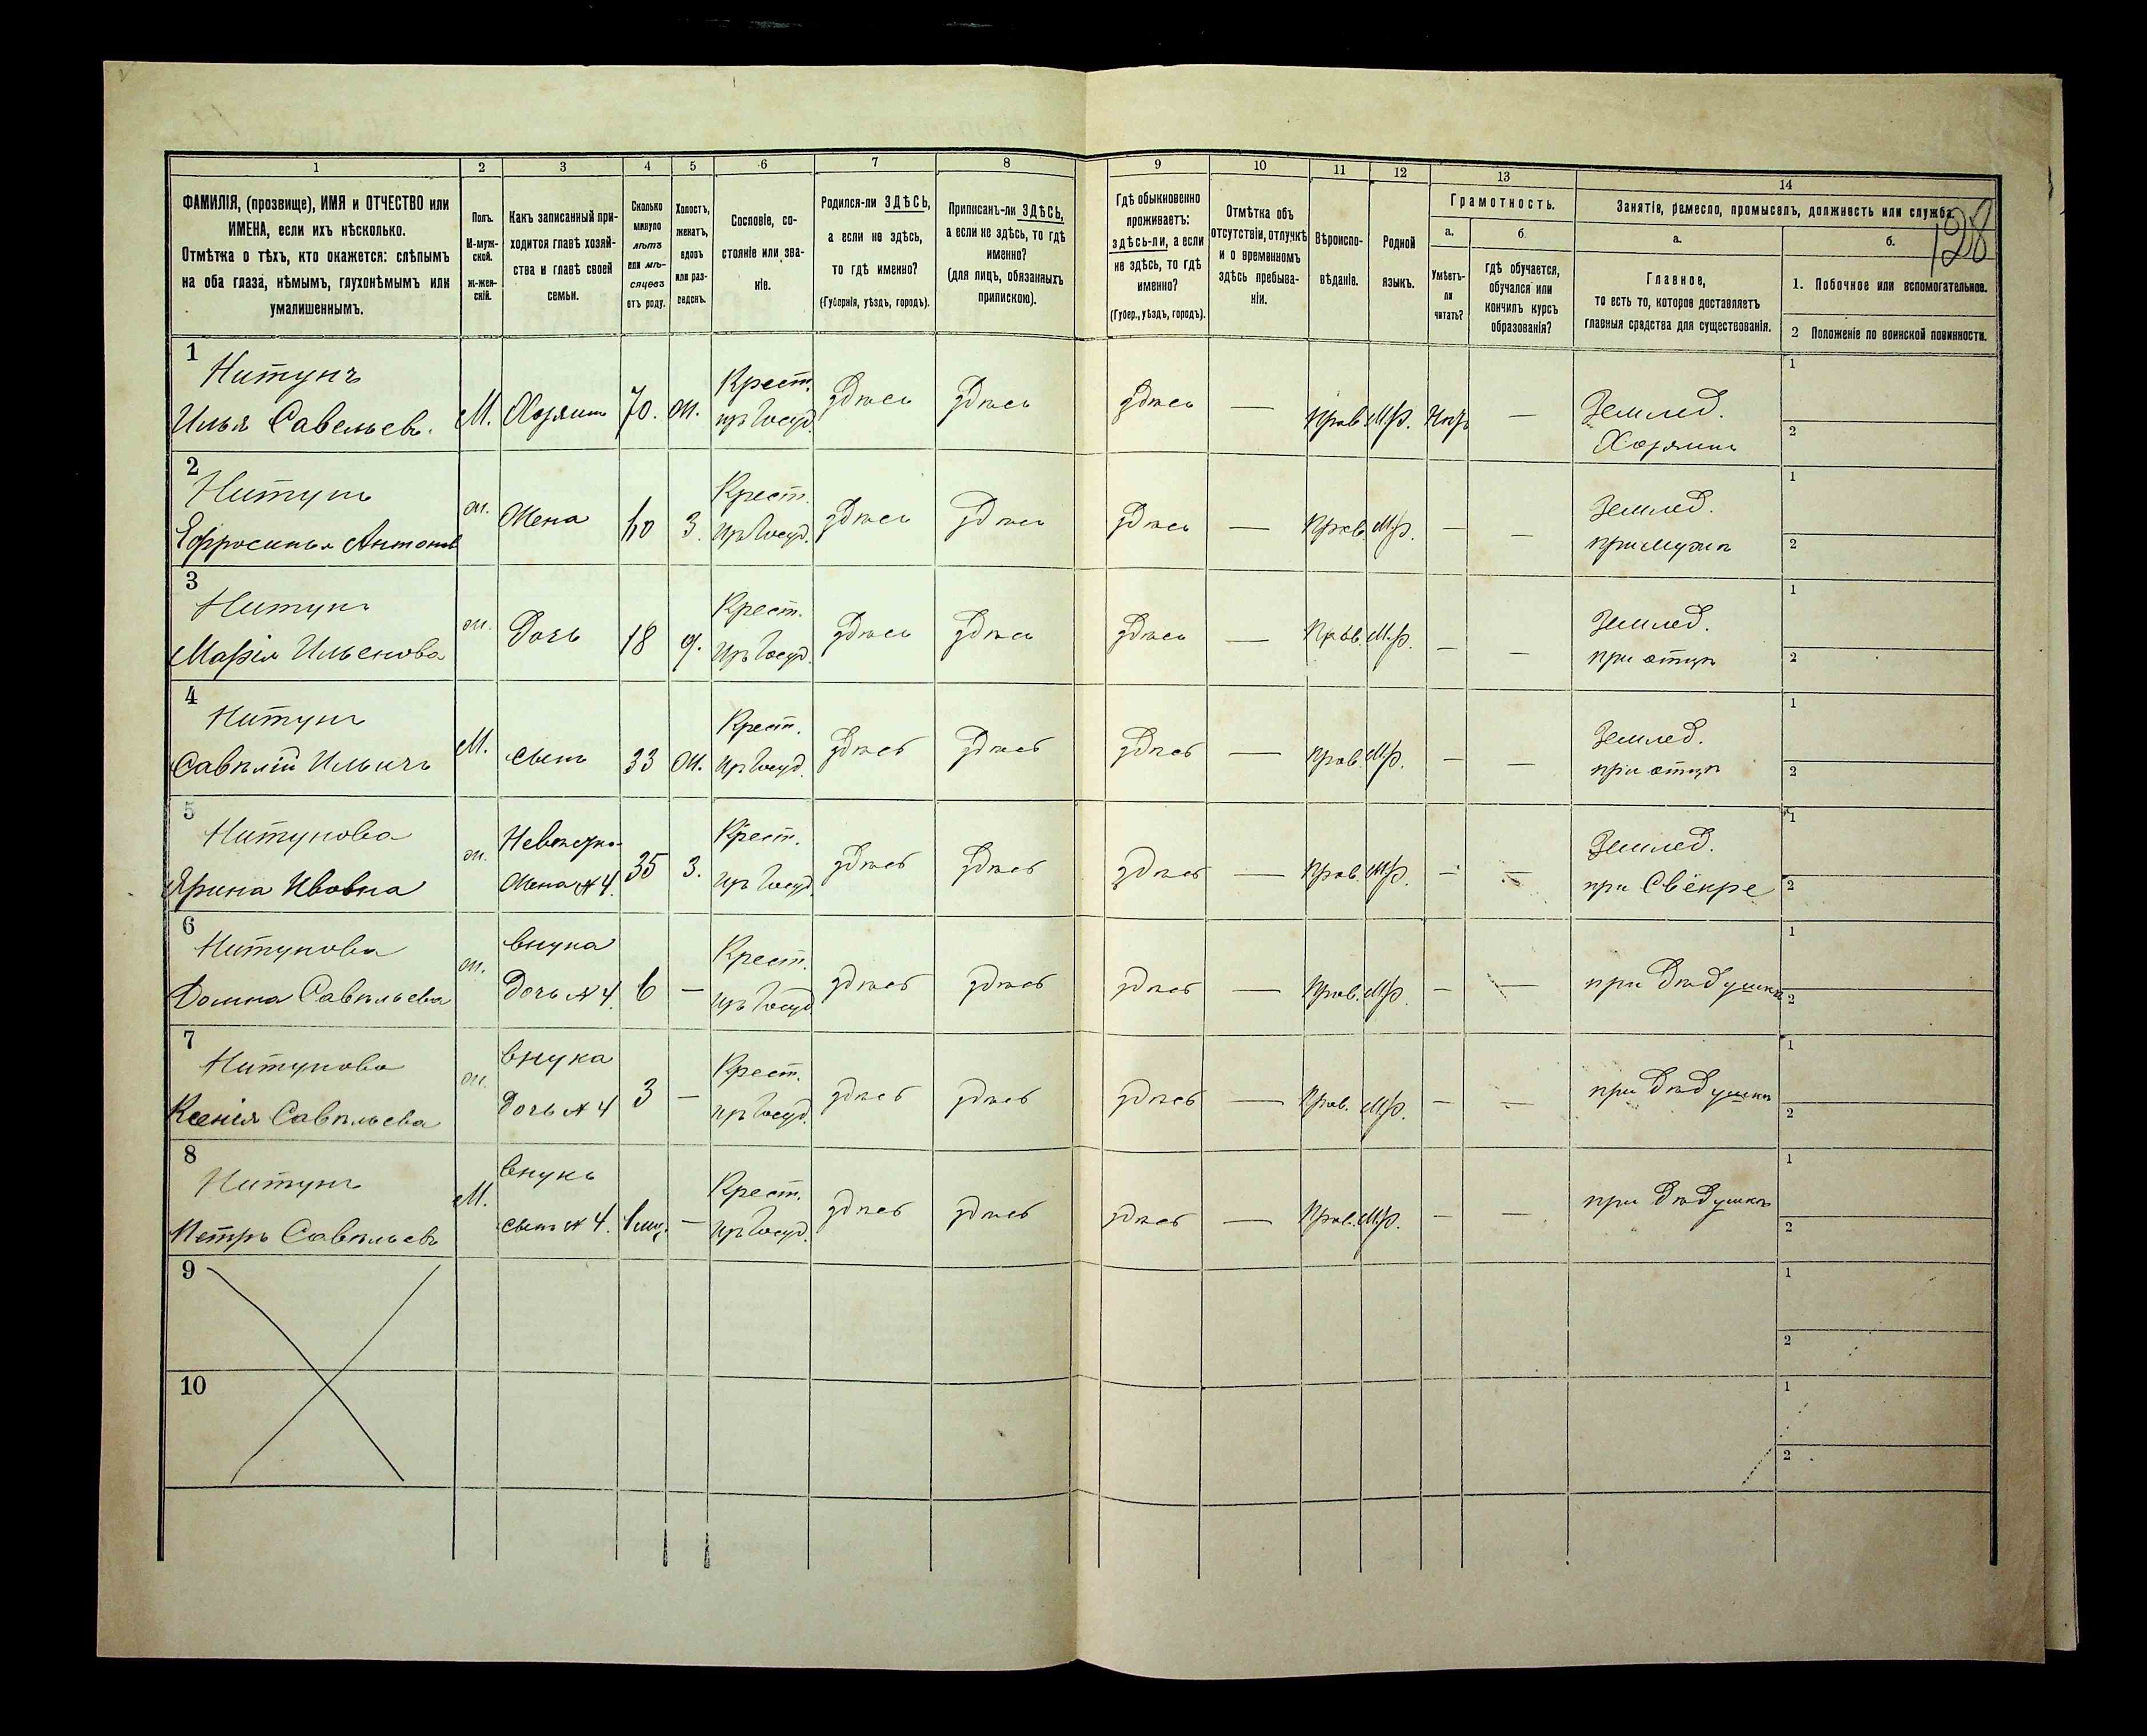 128
1 2 3 4 5 6 7 8 9 10 11 12 13 14
ФАМИЛІЯ, (прозвище), ИМЯ и ОТЧЕСТВО или
ИМЕНА, если ихъ нѣсколько.
Отмѣтка о тѣхъ, кто окажется: слѣпымъ
на оба глаза, нѣмымъ, глухонѣмымъ или
умалишеннымъ.
Полъ.
М-муж-
ской.
Ж-жен-
скій.
Какъ записанный при-
ходится главѣ хозяй-
ства и главѣ своей
семьи.
Сколько
минуло
лѣтъ
или мѣ-
сяцевъ
отъ роду.
Холостъ,
женатъ,
вдовъ
или раз-
веденъ.
Сословіе, со-
стояніе или зва-
ніе.
Родился-ли ЗДѢСЬ,
а если не здѣсь,
то гдѣ именно?
(Губернія, уѣздъ, городъ).
Приписанъ-ли ЗДѢСЬ,
а если не здѣсь, то гдѣ
именно?
(для лицъ, обязанныхъ
припискою).
Гдѣ обыкновенно
проживаетъ:
здѣсь-ли, а если
не здѣсь, то гдѣ
именно?
(Губер., уѣздъ, городъ).
Отмѣтка объ
отсутствіи, отлучкѣ
и о временномъ
здѣсь пребыва-
ніи.
Вѣроиспо-
вѣданіе.
Родной
языкъ.
Грамотность.
а.
Умѣетъ-
ли
читать?
б.
гдѣ обучается,
обучался или
кончилъ курсъ
образованія?
Занятіе, ремесло, промыселъ, должность или служба.
а.
Главное,
то есть то, которое доставляетъ
главныя средства для существованія.
б.
1. Побочное или вспомогательное.
2 Положеніе по воинской повинности.
1
Нитунъ
Илья Савельевъ.
М. Хозяинъ 70. ж. Крест.
изъ Госуд. здѣсь здѣсь здѣсь — Прав. М.р. Нѣтъ — Землед.
Хозяинъ
1
2
2
Нитунъ
Ефросинья Антонов
ж. Жена 60 з. Крест.
изъ Госуд. здѣсь здѣсь здѣсь — Прав. М.р. — — Землед.
при мужѣ
1
2
3
Нитунъ
Марія Ильенова
ж. Дочь 18 д. Крест.
изъ Госуд. здѣсь здѣсь здѣсь — Прав. М.р. — — Землед.
при отцѣ
1
2
4
Нитунъ
Савѣлій Ильичъ
М. сынъ 33 ж. Крест.
изъ Госуд. здѣсь здѣсь здѣсь — Прав. М.р. — — Землед.
при отцѣ
1
2
5
Нитунова
Ярина Ивовна
ж. Невѣстка
Жена №4. 35 з. Крест.
изъ Госуд. здѣсь здѣсь здѣсь — Прав. М.р. — — Землед.
при Свёкре
1
2
6
Нитунова
Домна Савѣльева
ж. внука
Дочь №4. 6 — Крест.
изъ Госуд. здѣсь здѣсь здѣсь — Прав. М.р. — — при дѣдушкѣ
1
2
7
Нитунова
Ксенія Савѣльева
ж. внука
Дочь №4 3 — Крест.
изъ Госуд. здѣсь здѣсь здѣсь — Прав. М.р. — — при дѣдушкѣ
1
2
8
Нитунъ
Петръ Савѣльевъ
М. внукъ
сынъ №4. — Крест.
изъ Госуд. здѣсь здѣсь здѣсь — Прав. М.р. — — при дѣдушкѣ
1
2
9
1
2
10
1
2